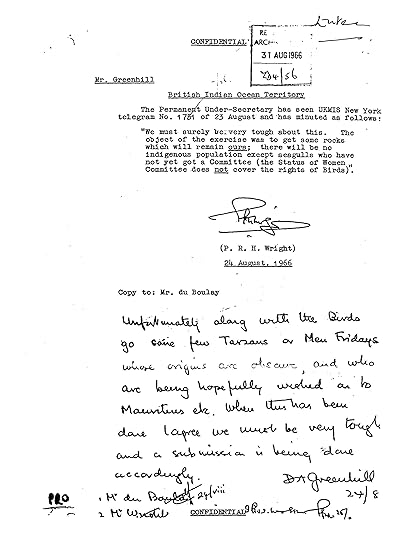 CONFIDENTIAL
RE
ARCH
31 AUG 1966
Mr. Greenhill
British Indian Ocean Territory
The Permanent Under-Secretary has seen UKMIS New York
telegram No. 1731 of 23 August and has minuted as follows:
"We must surely be very tough about this. The
object of the exercise was to get some rocks
which will remain ours; there will be no
indigenous population except seagulls who have
not yet got a Committee (the Status of Women
Committee does not cover the rights of Birds)".
(P. R. H. Wright)
24 August, 1966
Copy to: Mr. du Boulay
Unfortunately along with the Birds
go some few Tarzans or Men Fridays
whose origins are obscure, and who
are being hopefully wished on to
Mauritius etc. When this has been
done I agree we must be very tough
and a submission is being done
accordingly.
DA Greenhill
24/8
PRO
1 Mr du Boulay 24/viii
2 Mr
CONFIDENTIAL